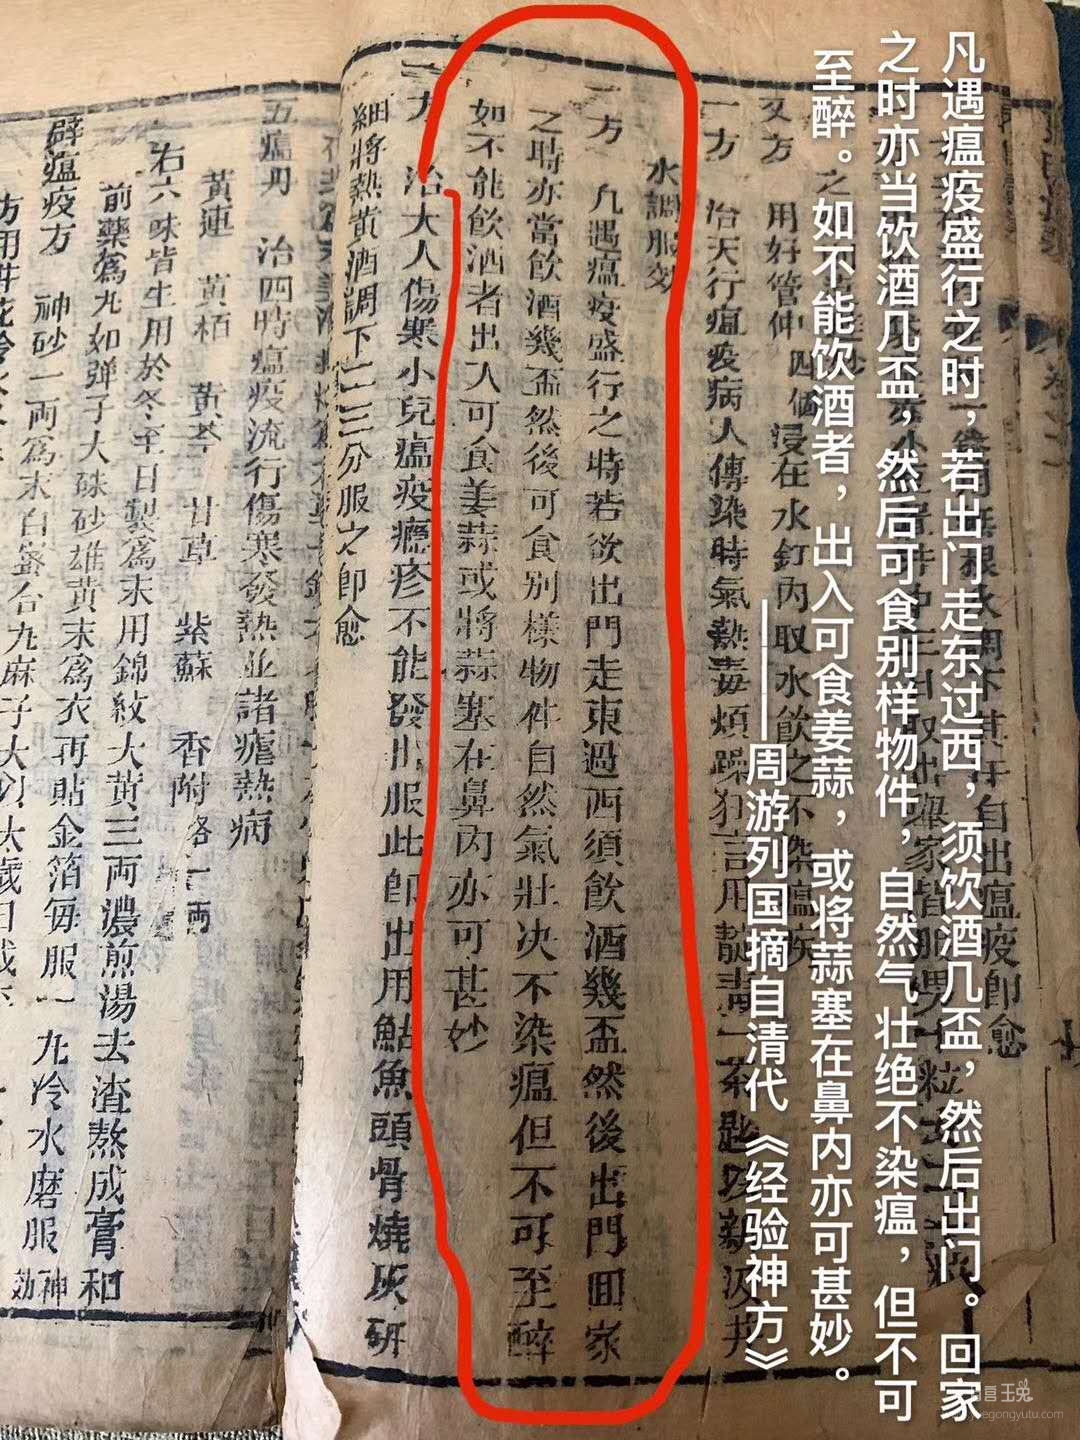 凡遇瘟疫盛行之时，若出门走东过西，须饮酒几盃，然后出门。回家
之时亦当饮酒几盃，然后可食别样物件，自然气壮绝不染瘟，但不可
至醉。之如不能饮酒者，出入可食姜蒜，或将蒜塞在鼻内亦可甚妙。
——周游列国摘自清代《经验神方》
又方 用好管仲四個浸在水缸內取水飲之不染瘟疾
一方 治天行瘟疫病人傳染時氣熱毒煩躁狂言用靛青一茶匙以新汲井
水調服効
一方 凡遇瘟疫盛行之時若欲出門走東過西須飲酒幾盃然後出門囬家
之時亦當飲酒幾盃然後可食別樣物件自然氣壯决不染瘟但不可至醉
如不能飲酒者出入可食姜蒜或將蒜塞在鼻內亦可甚妙
一方 治大人傷寒小兒瘟疫癮疹不能發出服此即出用鮎魚頭骨燒灰研
細將熱黃酒調下二三分服之即愈
五瘟丹 治四時瘟疫流行傷寒發熱並諸瘧熱病
黃連 黃栢 黃芩 甘草 紫蘇 香附各一両
右六味皆生用於冬至日製爲末用錦紋大黃三両濃煎湯去渣熬成膏和
前藥爲丸如弹子大硃砂雄黃末爲衣再貼金箔每服一丸冷水磨服神効
辟瘟疫方 神砂一両爲末白蜜合丸麻子大以太歲日或
方用井花冷水
yuegongyutu.com